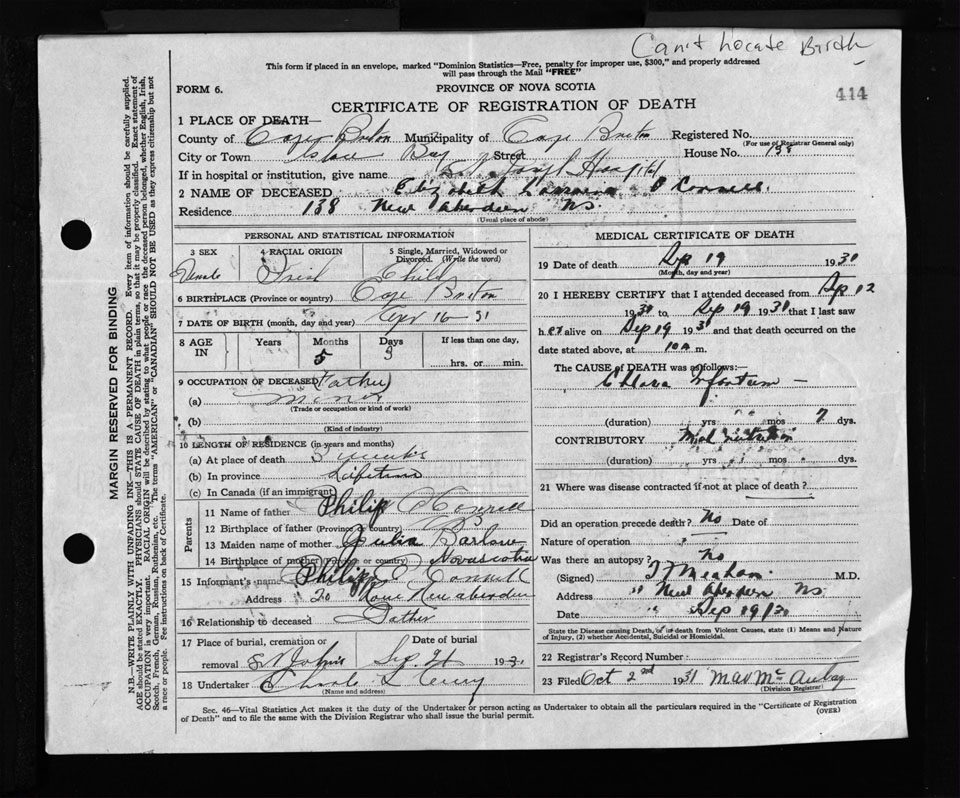 Can't Locate Birth
This form if placed in an envelope, marked "Dominion Statistics—Free, penalty for improper use, $300," and properly addressed
will pass through the Mail "FREE"
FORM 6.
PROVINCE OF NOVA SCOTIA
414
CERTIFICATE OF REGISTRATION OF DEATH
1 PLACE OF DEATH—
County of Cape Breton Municipality of Cape Breton Registered No.
(For use of Registrar General only)
City or Town Glace Bay Street House No. 138
If in hospital or institution, give name St Joseph Hospital
2 NAME OF DECEASED Elizabeth O Connell.
Residence 138 New Aberdeen NS.
(Usual place of abode)
PERSONAL AND STATISTICAL INFORMATION
3 SEX 4 RACIAL ORIGIN 5 Single, Married, Widowed or
Divorced. (Write the word)
Female Irish Child
6 BIRTHPLACE (Province or country) Cape Breton
7 DATE OF BIRTH (month, day and year) Apr 16 - 31
8 AGE IN Years Months Days If less than one day,
5 3 hrs. or min.
9 OCCUPATION OF DECEASED Father
(a) Miner
(Trade or occupation or kind of work)
(b)
(Kind of industry)
10 LENGTH OF RESIDENCE (in years and months)
(a) At place of death 3 weeks
(b) In province Lifetime
(c) In Canada (if an immigrant)
Parents
11 Name of father Philip O Connell
12 Birthplace of father (Province or country)
13 Maiden name of mother Julia Barlow
14 Birthplace of mother (Province or country) Novascotia
15 Informant's name Philip O Connell
Address 20 New aberdeen
16 Relationship to deceased Father
17 Place of burial, cremation or Date of burial
removal St Johns Sep. 193
18 Undertaker Charle
(Name and address)
MEDICAL CERTIFICATE OF DEATH
19 Date of death Sep 19 1931
(Month, day and year)
20 I HEREBY CERTIFY that I attended deceased from Sep 12
1931 to Sep 19 1931 that I last saw
h er alive on Sep 19 1931 and that death occurred on the
date stated above, at 10 a m.
The CAUSE OF DEATH was as follows:—
Infantum —
(duration) yrs mos 7 dys.
CONTRIBUTORY Malnutrition
(duration) yrs mos dys.
21 Where was disease contracted if not at place of death?
Did an operation precede death? No Date of
Nature of operation
Was there an autopsy? No
(Signed) M.D.
Address " New Aberdeen NS.
Date " Sep 19/31
State the Disease causing Death, or in death from Violent Causes, state (1) Means and Nature
of Injury, (2) whether Accidental, Suicidal or Homicidal.
22 Registrar's Record Number
23 Filed Oct 2nd 1931
(Division Registrar)
Sec. 46—Vital Statistics Act makes it the duty of the Undertaker or person acting as Undertaker to obtain all the particulars required in the "Certificate of Registration
of Death" and to file the same with the Division Registrar who shall issue the burial permit. (OVER)
MARGIN RESERVED FOR BINDING
N.B.—WRITE PLAINLY WITH UNFADING INK—THIS IS A PERMANENT RECORD. Every item of information should be carefully supplied.
AGE should be stated EXACTLY. PHYSICIANS should STATE CAUSE OF DEATH in plain terms, so that it may be properly classified. Exact statement of
OCCUPATION is very important. RACIAL ORIGIN will be described by stating to what people or race the deceased person belonged, whether English, Irish,
Scotch, French, German, Russian, Ruthenian, etc. The terms "AMERICAN" or "CANADIAN" SHOULD NOT BE USED as they express citizenship but not
a race or people. See instructions on back of Certificate.